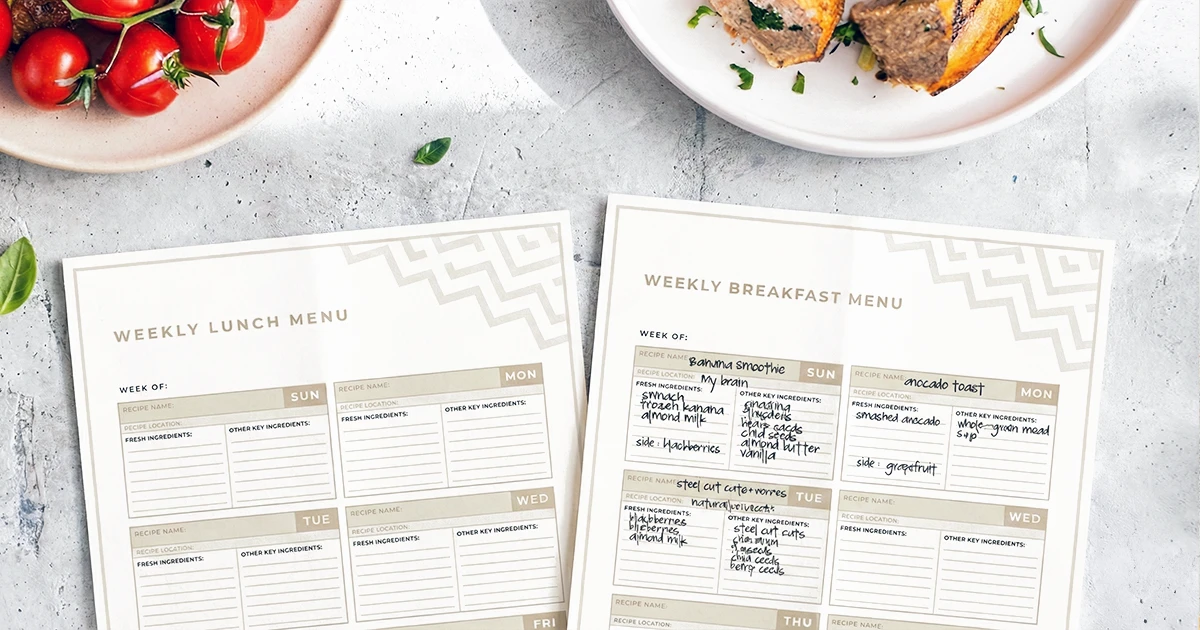 WEEKLY LUNCH MENU
WEEK OF:
RECIPE NAME: SUN
RECIPE LOCATION:
FRESH INGREDIENTS: OTHER KEY INGREDIENTS:
RECIPE NAME: MON
RECIPE LOCATION:
FRESH INGREDIENTS: OTHER KEY INGREDIENTS:
RECIPE NAME: TUE
RECIPE LOCATION:
FRESH INGREDIENTS: OTHER KEY INGREDIENTS:
RECIPE NAME: WED
RECIPE LOCATION:
FRESH INGREDIENTS: OTHER KEY INGREDIENTS:
FRI
WEEKLY BREAKFAST MENU
WEEK OF:
RECIPE NAME: Banana smoothie SUN
RECIPE LOCATION: My brain
FRESH INGREDIENTS:
frozen kanana
almond milk
side: blackberries
OTHER KEY INGREDIENTS:
almond butter
vanilla
RECIPE NAME: anocado toast MON
RECIPE LOCATION:
FRESH INGREDIENTS:
smashed anocado
side: grapefruit
OTHER KEY INGREDIENTS:
whole-grain mead
RECIPE NAME: steel cut cuts + TUE
RECIPE LOCATION:
FRESH INGREDIENTS:
almond milk
OTHER KEY INGREDIENTS:
steel cut cuts
RECIPE NAME: WED
RECIPE LOCATION:
FRESH INGREDIENTS: OTHER KEY INGREDIENTS:
RECIPE NAME: THU
RECIPE LOCATION:
RECIPE NAME: